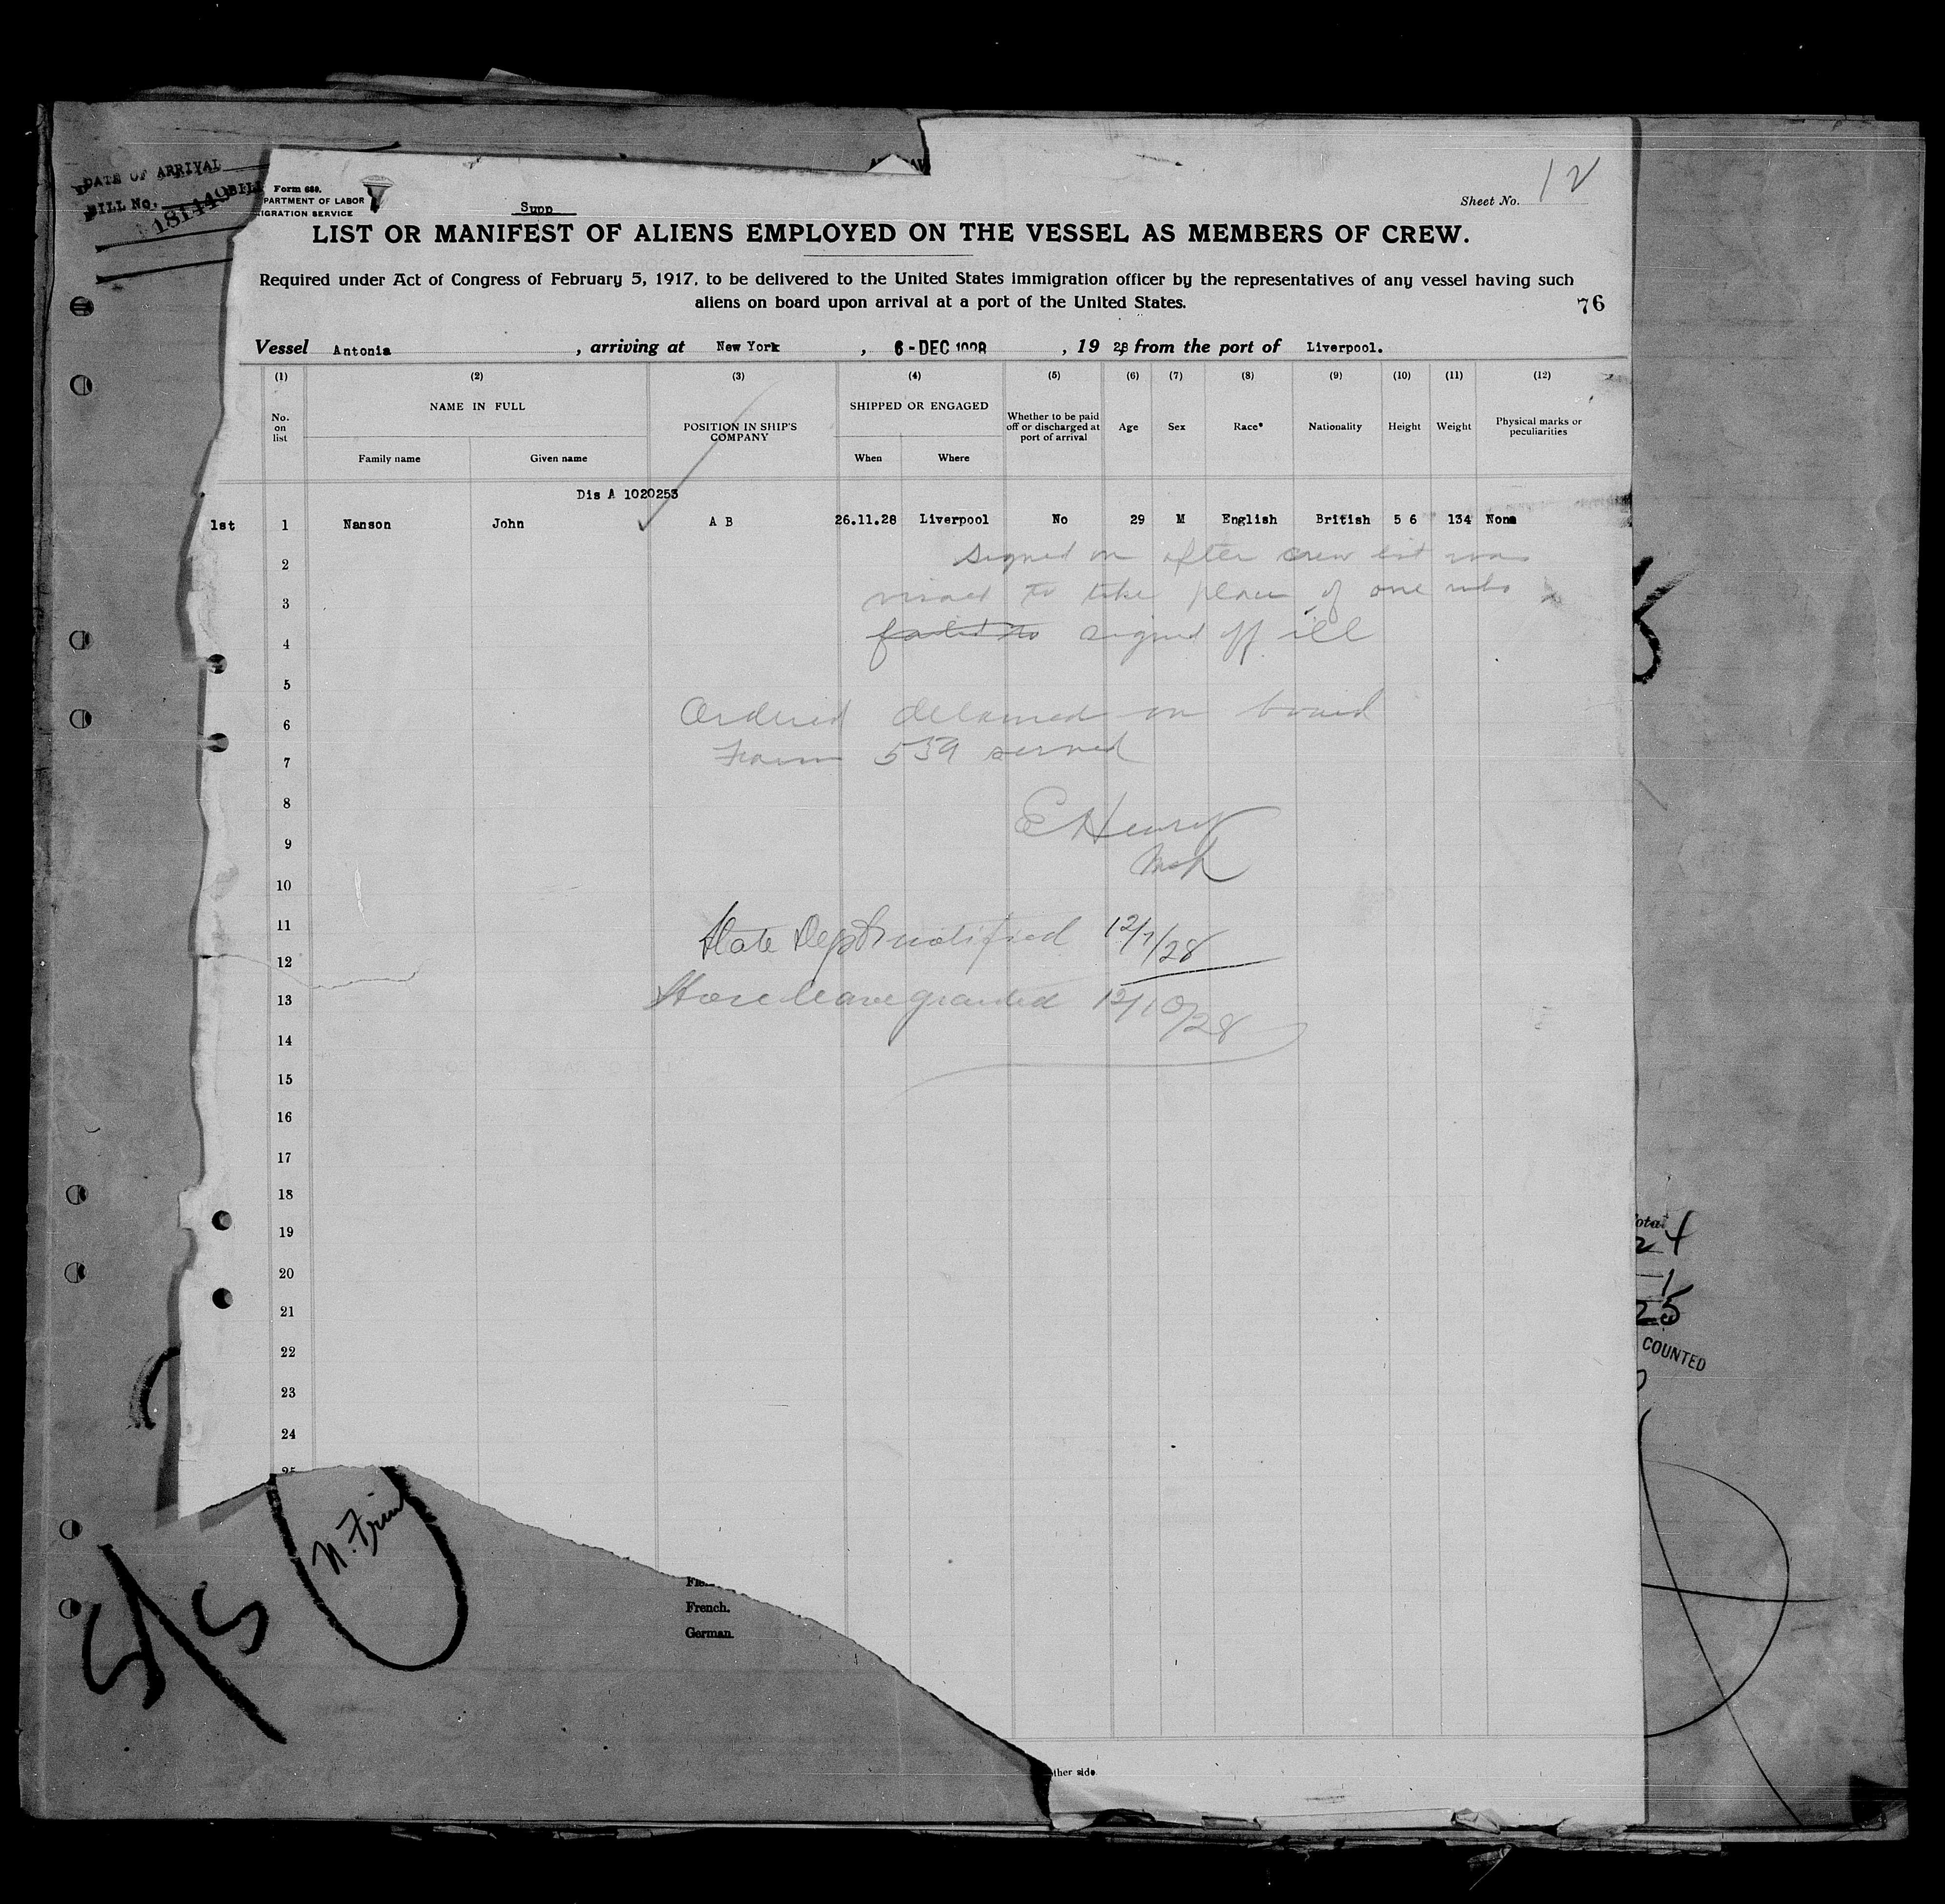 DATE OF ARRIVAL
BILL No. 181449 BILL
Form 689.
PARTMENT OF LABOR
IGRATION SERVICE
Supp
Sheet No. 12
LIST OR MANIFEST OF ALIENS EMPLOYED ON THE VESSEL AS MEMBERS OF CREW.
Required under Act of Congress of February 5, 1917, to be delivered to the United States immigration officer by the representatives of any vessel having such
aliens on board upon arrival at a port of the United States.
76
Vessel Antonia , arriving at New York , 6-DEC 1928 , 19 28, from the port of Liverpool.
(1) (2) (3) (4) (5) (6) (7) (8) (9) (10) (11) (12)
No. on list NAME IN FULL POSITION IN SHIP'S COMPANY SHIPPED OR ENGAGED Whether to be paid off or discharged at port of arrival Age Sex Race* Nationality Height Weight Physical marks or peculiarities
Family name Given name When Where
Dis A 1020253
1st 1 Nanson John A B 26.11.28 Liverpool No 29 M English British 5 6 134 None
2 Signed on after crew list was
3 visaed to take place of one who
4 failed to signed off ill
5
6 Ordered detained on board
7 Form 539 served
8 E Henry
9
10
11 State Dept notified 12/7/28
12
13 Shore leave granted 12/10/28
14
15
16
17
18
19
20
21
22
23
24
25
Total
24
1
25
COUNTED
S/S
French.
German.
other side